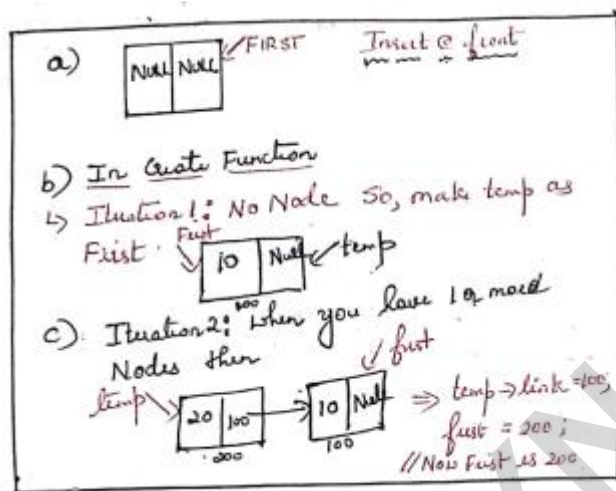 a) NULL NULL FIRST Insert @ front
b) In Create Function
↳ Iteration 1: No Node So, make temp as
First. First
10 Null temp
100
c) Iteration 2: when you have 1 or more
Nodes then
first
temp 20 100 10 Null ⇒ temp→link=100;
200 100 first = 200;
//Now First is 200